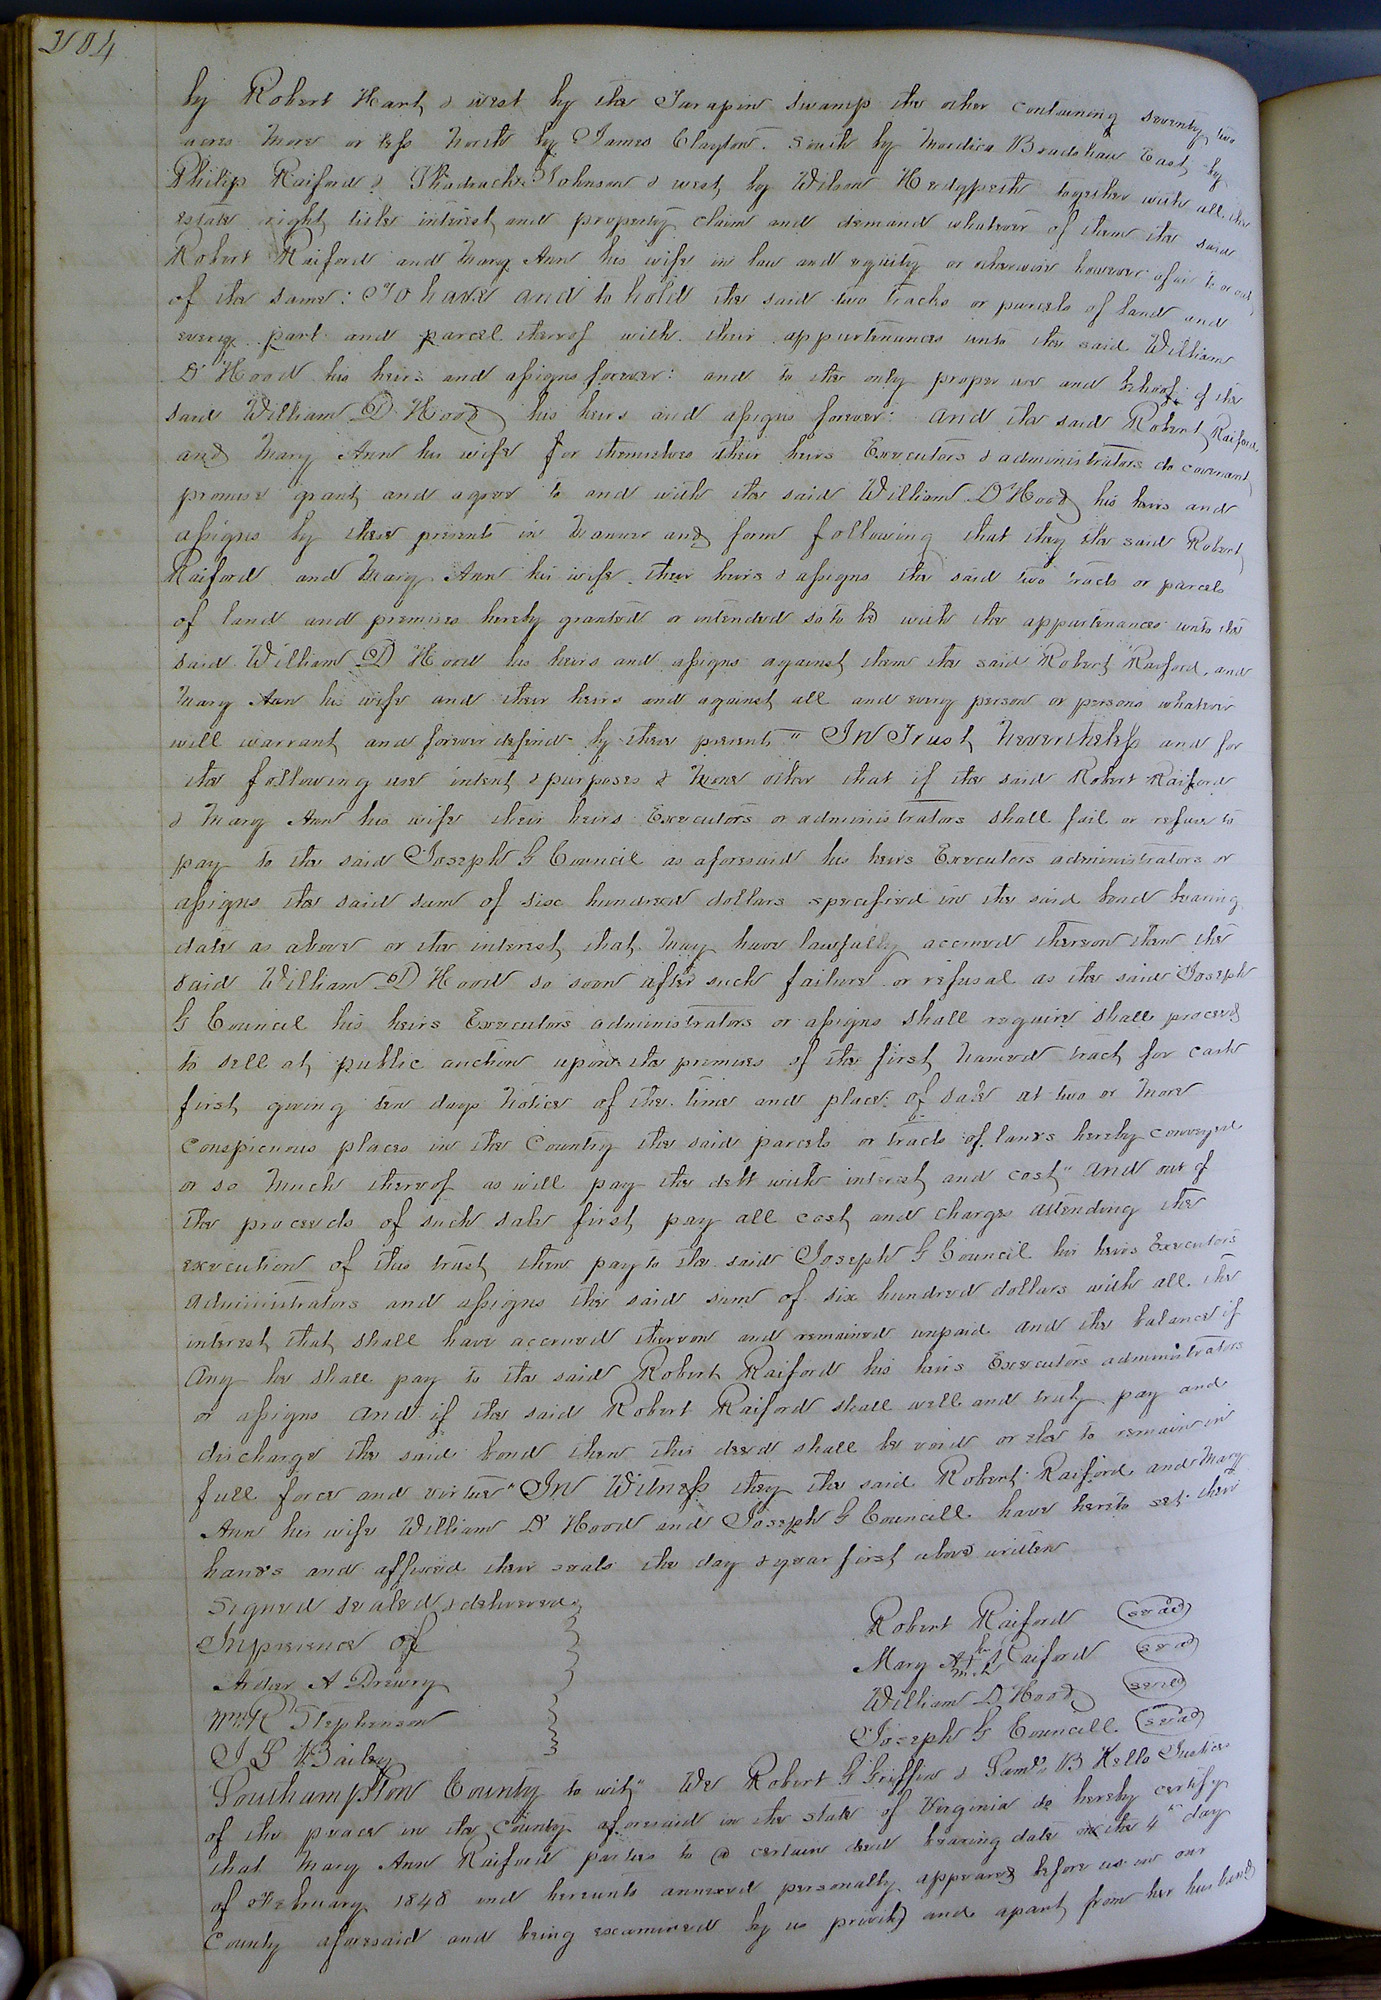 204
by Robert Hart & west by the Tarapin Swamp the other containing seventy two
acres more or less North by James Clayton. South by Mordica Bradshaw East by
Philip Raiford & Shadrach Johnson & west by Wilson Hedgpeth together with all the
estate right title interest and property claim and demand whatever of them the said
Robert Raiford and Mary Ann his wife in law and equity or otherwise however of in to or out
of the same: To have and to hold the said two tracts or parcels of land and
every part and parcel thereof with their appurtenances unto the said William
D Hood his heirs and assigns forever: and to the only proper use and behoof of the
said William D Hood his heirs and assigns forever: and the said Robert Raiford
and Mary Ann his wife for themselves their heirs Executors & administrators do covenant
promise grant and agree to and with the said William D Hood his heirs and
assigns by these presents in manner and form following that they the said Robert
Raiford and Mary Ann his wife their heirs & assigns the said two tracts or parcels
of land and premises hereby granted or intended so to be with the appurtenances unto the
said William D Hood his heirs and assigns against them the said Robert Raiford and
Mary Ann his wife and their heirs and against all and every person or persons whatever
will warrant and forever defend by these presents" In Trust Nevertheless and for
the following use intent & purposes & none other that if the said Robert Raiford
& Mary Ann his wife their heirs Executors or administrators shall fail or refuse to
pay to the said Joseph G Council as aforesaid his heirs Executors administrators or
assigns the said sum of six hundred dollars specified in the said bond bearing
date as above or the interest that may have lawfully accrued thereon then the
said William D Hood so soon after such failure or refusal as the said Joseph
G Council his heirs Executors administrators or assigns shall require shall proceed
to sell at public auction upon the premises of the first named tract for cash
first giving ten days notice of the time and place of sale at two or more
conspicuous places in the Country the said parcels or tracts of lands hereby conveyed
or so much thereof as will pay the debt with interest and cost" and out of
the proceeds of such sale first pay all cost and charges attending the
execution of this trust then pay to the said Joseph G Council his heirs Executors
administrators and assigns the said sum of six hundred dollars with all the
interest that shall have accrued thereon and remained unpaid and the balance if
any he shall pay to the said Robert Raiford his heirs Executors administrators
or assigns and if the said Robert Raiford shall well and truly pay and
discharge the said bond then this deed shall be void or else to remain in
full force and virtue" In Witness they the said Robert Raiford and Mary
Ann his wife William D Hood and Joseph G Councill have hereto set their
hands and affixed their seals the day & year first above written
Signed sealed & delivered
In presence of
Robert Raiford (seal)
Mary A + Raiford (seal)
William D Hood (seal)
Joseph G Councill (seal)
A Drewry
Wm R Stephenson
J S Bailey
Southampton County to wit" We Robert G Griffin & Saml B Kello Justices
of the peace in the County aforesaid in the State of Virginia do hereby certify
that Mary Ann Raiford parties to a certain deed bearing date on the 4th day
of February 1848 and hereunto annexed personally appeared before us in our
County aforesaid and being examined by us privily and apart from her husband